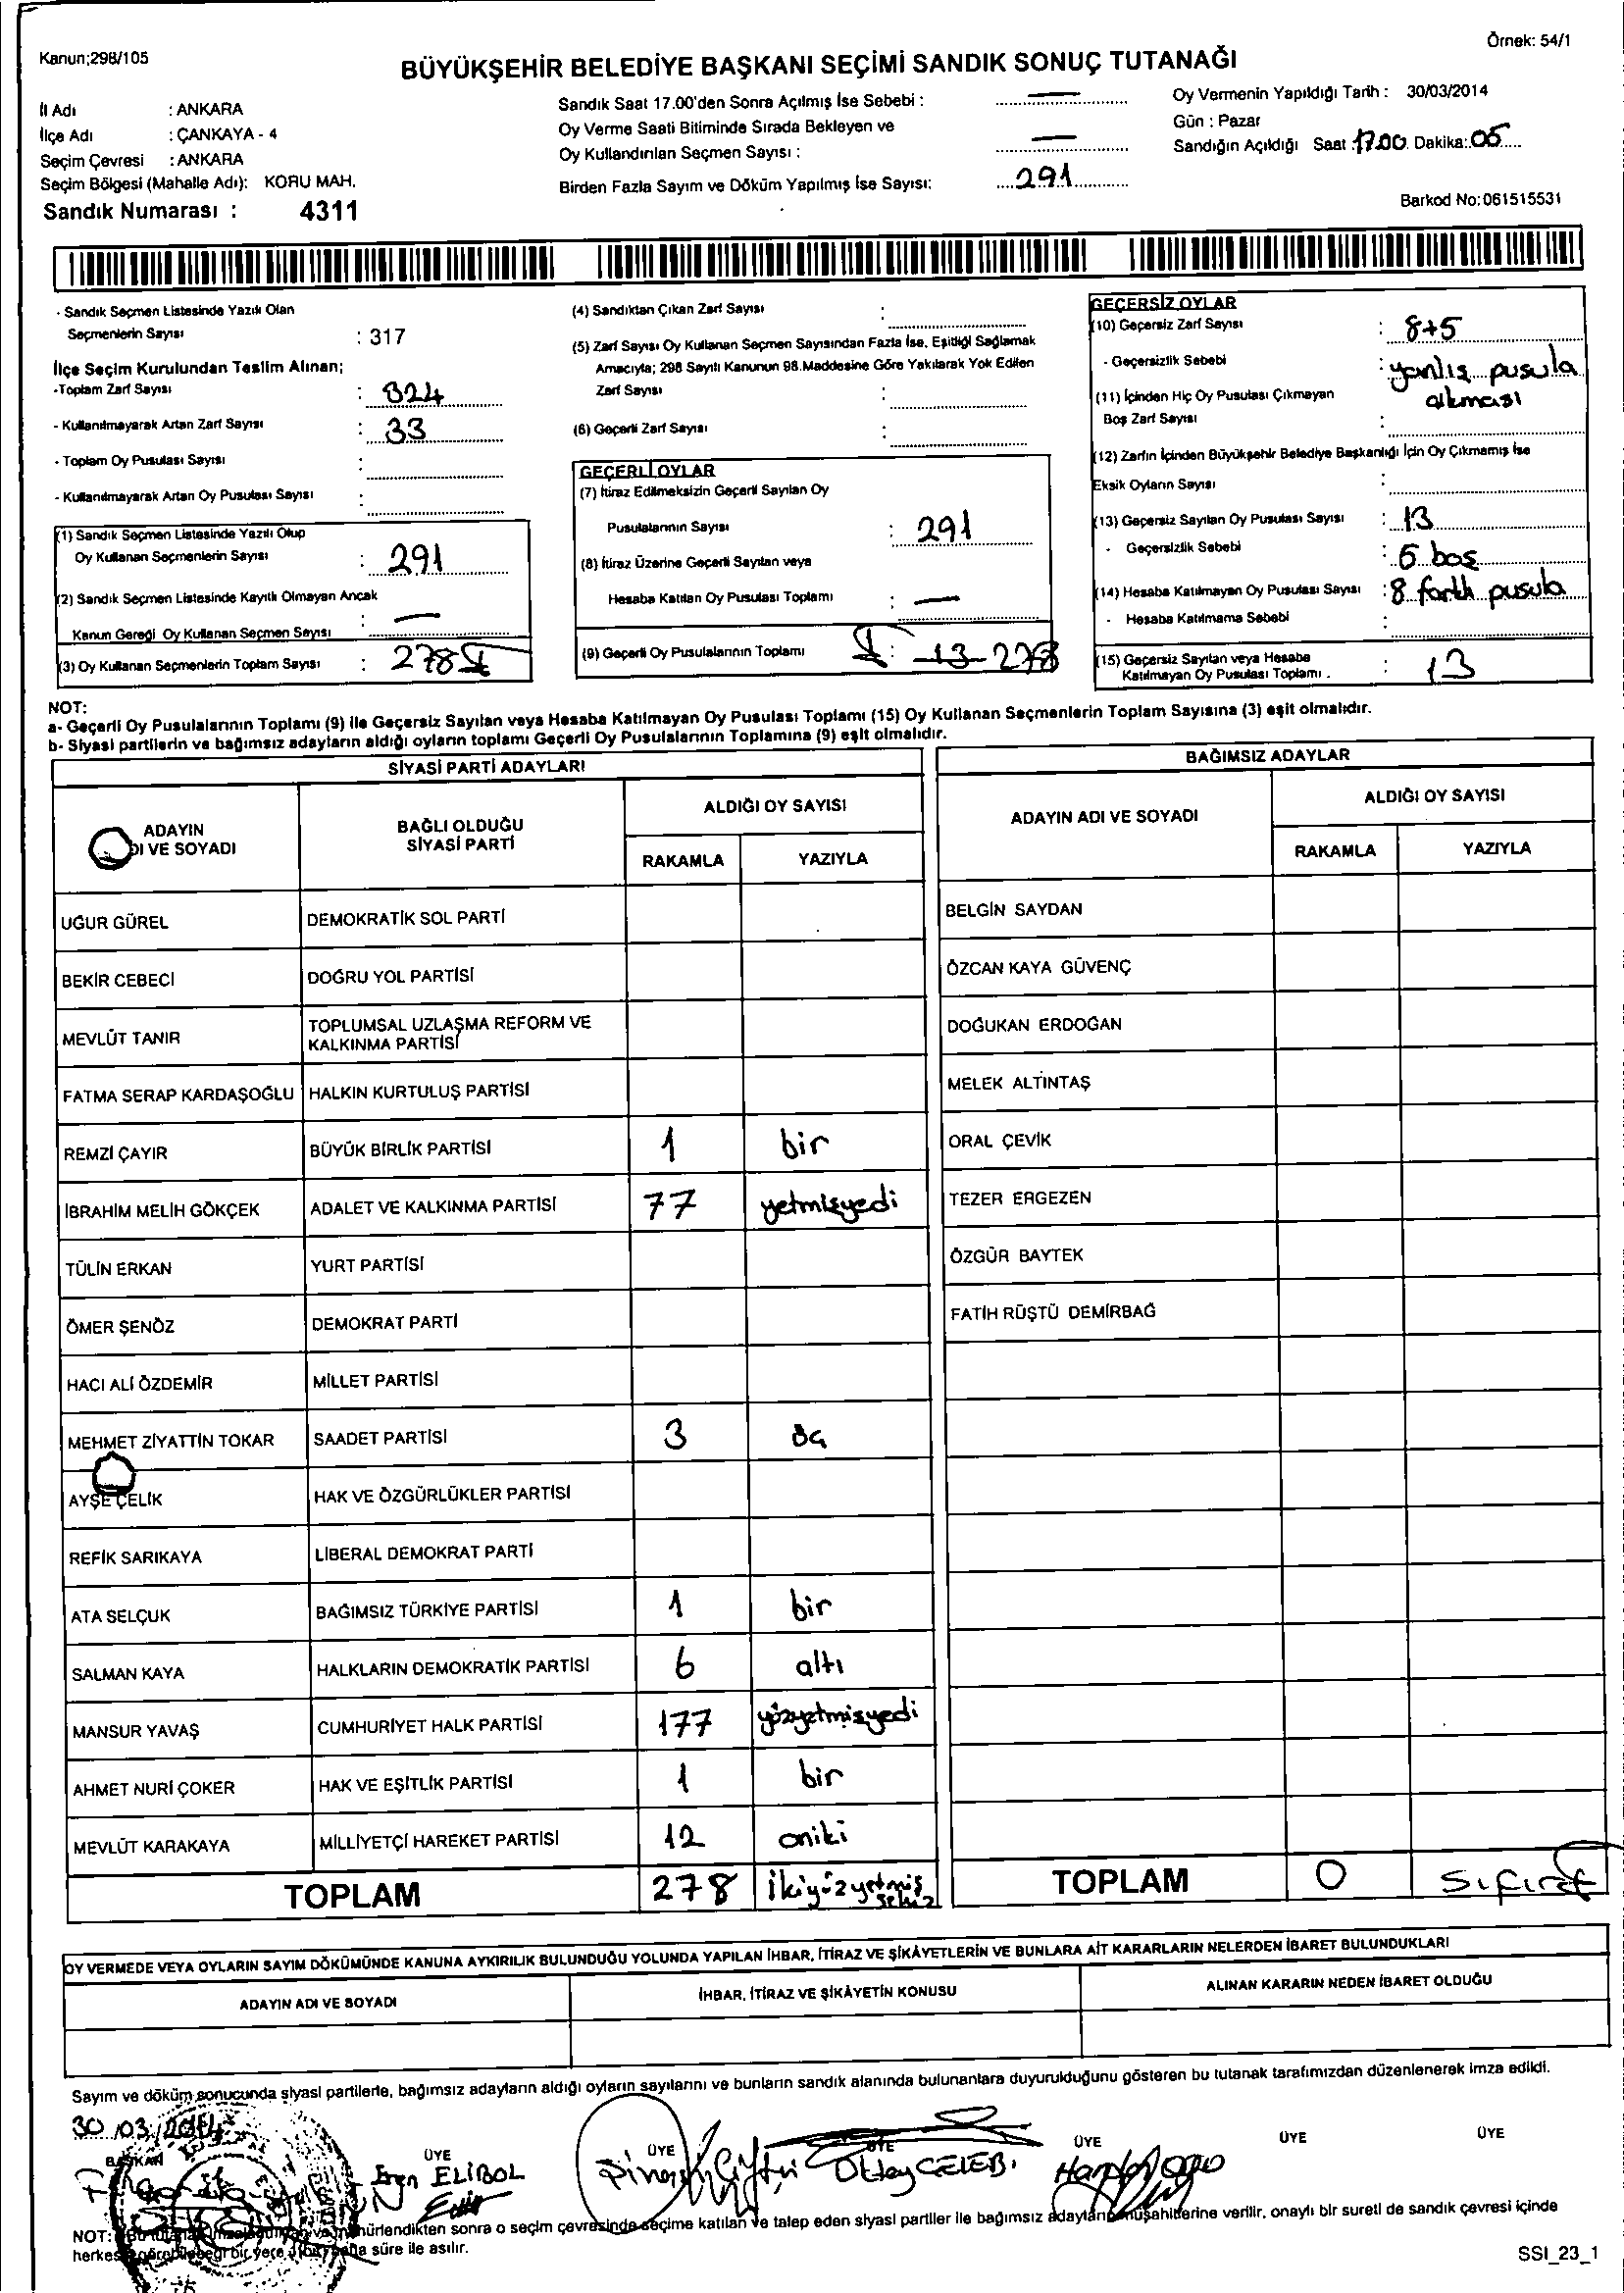 Kanun;298/105
Örnek: 54/1
BÜYÜKŞEHİR BELEDİYE BAŞKANI SEÇİMİ SANDIK SONUÇ TUTANAĞI
İl Adı : ANKARA
İlçe Adı : ÇANKAYA - 4
Seçim Çevresi : ANKARA
Seçim Bölgesi (Mahalle Adı): KORU MAH.
Sandık Numarası : 4311
Sandık Saat 17.00'den Sonra Açılmış İse Sebebi : —
Oy Verme Saati Bitiminde Sırada Bekleyen ve
Oy Kullandırılan Seçmen Sayısı : —
Birden Fazla Sayım ve Döküm Yapılmış İse Sayısı: 291
Oy Vermenin Yapıldığı Tarih : 30/03/2014
Gün : Pazar
Sandığın Açıldığı Saat :17.00. Dakika:.05
Barkod No:061515531
- Sandık Seçmen Listesinde Yazılı Olan
Seçmenlerin Sayısı : 317
İlçe Seçim Kurulundan Teslim Alınan;
-Toplam Zarf Sayısı : 324
- Kullanılmayarak Artan Zarf Sayısı : 33
- Toplam Oy Pusulası Sayısı :
- Kullanılmayarak Artan Oy Pusulası Sayısı :
(1) Sandık Seçmen Listesinde Yazılı Olup
Oy Kullanan Seçmenlerin Sayısı : 291
(2) Sandık Seçmen Listesinde Kayıtlı Olmayan Ancak
Kanun Gereği Oy Kullanan Seçmen Sayısı : —
(3) Oy Kullanan Seçmenlerin Toplam Sayısı : 278
(4) Sandıktan Çıkan Zarf Sayısı :
(5) Zarf Sayısı Oy Kullanan Seçmen Sayısından Fazla İse, Eşitliği Sağlamak
Amacıyla; 298 Sayılı Kanunun 98.Maddesine Göre Yakılarak Yok Edilen
Zarf Sayısı :
(6) Geçerli Zarf Sayısı :
GEÇERLİ OYLAR
(7) İtiraz Edilmeksizin Geçerli Sayılan Oy
Pusulalarının Sayısı : 291
(8) İtiraz Üzerine Geçerli Sayılan veya
Hesaba Katılan Oy Pusulası Toplamı : —
(9) Geçerli Oy Pusulalarının Toplamı : -13-278
GEÇERSİZ OYLAR
(10) Geçersiz Zarf Sayısı : 8+5
- Geçersizlik Sebebi : yanlış pusula
atması
(11) İçinden Hiç Oy Pusulası Çıkmayan
Boş Zarf Sayısı :
(12) Zarfın İçinden Büyükşehir Belediye Başkanlığı İçin Oy Çıkmamış İse
Eksik Oyların Sayısı :
(13) Geçersiz Sayılan Oy Pusulası Sayısı : 13
- Geçersizlik Sebebi : 5 boş
(14) Hesaba Katılmayan Oy Pusulası Sayısı : 8 farklı pusula
- Hesaba Katılmama Sebebi :
(15) Geçersiz Sayılan veya Hesaba
Katılmayan Oy Pusulası Toplamı . : 13
NOT:
a- Geçerli Oy Pusulalarının Toplamı (9) ile Geçersiz Sayılan veya Hesaba Katılmayan Oy Pusulası Toplamı (15) Oy Kullanan Seçmenlerin Toplam Sayısına (3) eşit olmalıdır.
b- Siyasi partilerin ve bağımsız adayların aldığı oyların toplamı Geçerli Oy Pusulalarının Toplamına (9) eşit olmalıdır.
SİYASİ PARTİ ADAYLARI
ADAYIN
DI VE SOYADI
BAĞLI OLDUĞU
SİYASİ PARTİ
ALDIĞI OY SAYISI
RAKAMLA YAZIYLA
UĞUR GÜREL DEMOKRATİK SOL PARTİ
BEKİR CEBECİ DOĞRU YOL PARTİSİ
MEVLÜT TANIR TOPLUMSAL UZLAŞMA REFORM VE
KALKINMA PARTİSİ
FATMA SERAP KARDAŞOĞLU HALKIN KURTULUŞ PARTİSİ
REMZİ ÇAYIR BÜYÜK BİRLİK PARTİSİ 1 bir
İBRAHİM MELİH GÖKÇEK ADALET VE KALKINMA PARTİSİ 77 yetmişyedi
TÜLİN ERKAN YURT PARTİSİ
ÖMER ŞENÖZ DEMOKRAT PARTİ
HACI ALİ ÖZDEMİR MİLLET PARTİSİ
MEHMET ZİYATTİN TOKAR SAADET PARTİSİ 3 üç
AYŞE ÇELİK HAK VE ÖZGÜRLÜKLER PARTİSİ
REFİK SARIKAYA LİBERAL DEMOKRAT PARTİ
ATA SELÇUK BAĞIMSIZ TÜRKİYE PARTİSİ 1 bir
SALMAN KAYA HALKLARIN DEMOKRATİK PARTİSİ 6 altı
MANSUR YAVAŞ CUMHURİYET HALK PARTİSİ 177 yüzyetmişyedi
AHMET NURİ ÇOKER HAK VE EŞİTLİK PARTİSİ 1 bir
MEVLÜT KARAKAYA MİLLİYETÇİ HAREKET PARTİSİ 12 oniki
TOPLAM 278 İkiyüzyetmiş
sekiz
BAĞIMSIZ ADAYLAR
ADAYIN ADI VE SOYADI
ALDIĞI OY SAYISI
RAKAMLA YAZIYLA
BELGİN SAYDAN
ÖZCAN KAYA GÜVENÇ
DOĞUKAN ERDOĞAN
MELEK ALTINTAŞ
ORAL ÇEVİK
TEZER ERGEZEN
ÖZGÜR BAYTEK
FATİH RÜŞTÜ DEMİRBAĞ
TOPLAM 0 Sıfır
OY VERMEDE VEYA OYLARIN SAYIM DÖKÜMÜNDE KANUNA AYKIRILIK BULUNDUĞU YOLUNDA YAPILAN İHBAR, İTİRAZ VE ŞİKÂYETLERİN VE BUNLARA AİT KARARLARIN NELERDEN İBARET BULUNDUKLARI
ADAYIN ADI VE SOYADI
İHBAR, İTİRAZ VE ŞİKÂYETİN KONUSU
ALINAN KARARIN NEDEN İBARET OLDUĞU
Sayım ve döküm sonucunda siyasi partilerle, bağımsız adayların aldığı oyların sayılarını ve bunların sandık alanında bulunanlara duyurulduğunu gösteren bu tutanak tarafımızdan düzenlenerek imza edildi.
30/03/2014
BAŞKAN ÜYE ÜYE ÜYE ÜYE ÜYE ÜYE
Eren ELİBOL Pınar Çiftçi Oktay ÇELEBİ
NOT: Bu tutanak sonra o seçim çevresinde seçime katılan ve talep eden siyasi partiler ile bağımsız adayların müşahitlerine verilir, onaylı bir sureti de sandık çevresi içinde
herkesin görebileceği bir yere süre ile asılır.
SSI_23_1